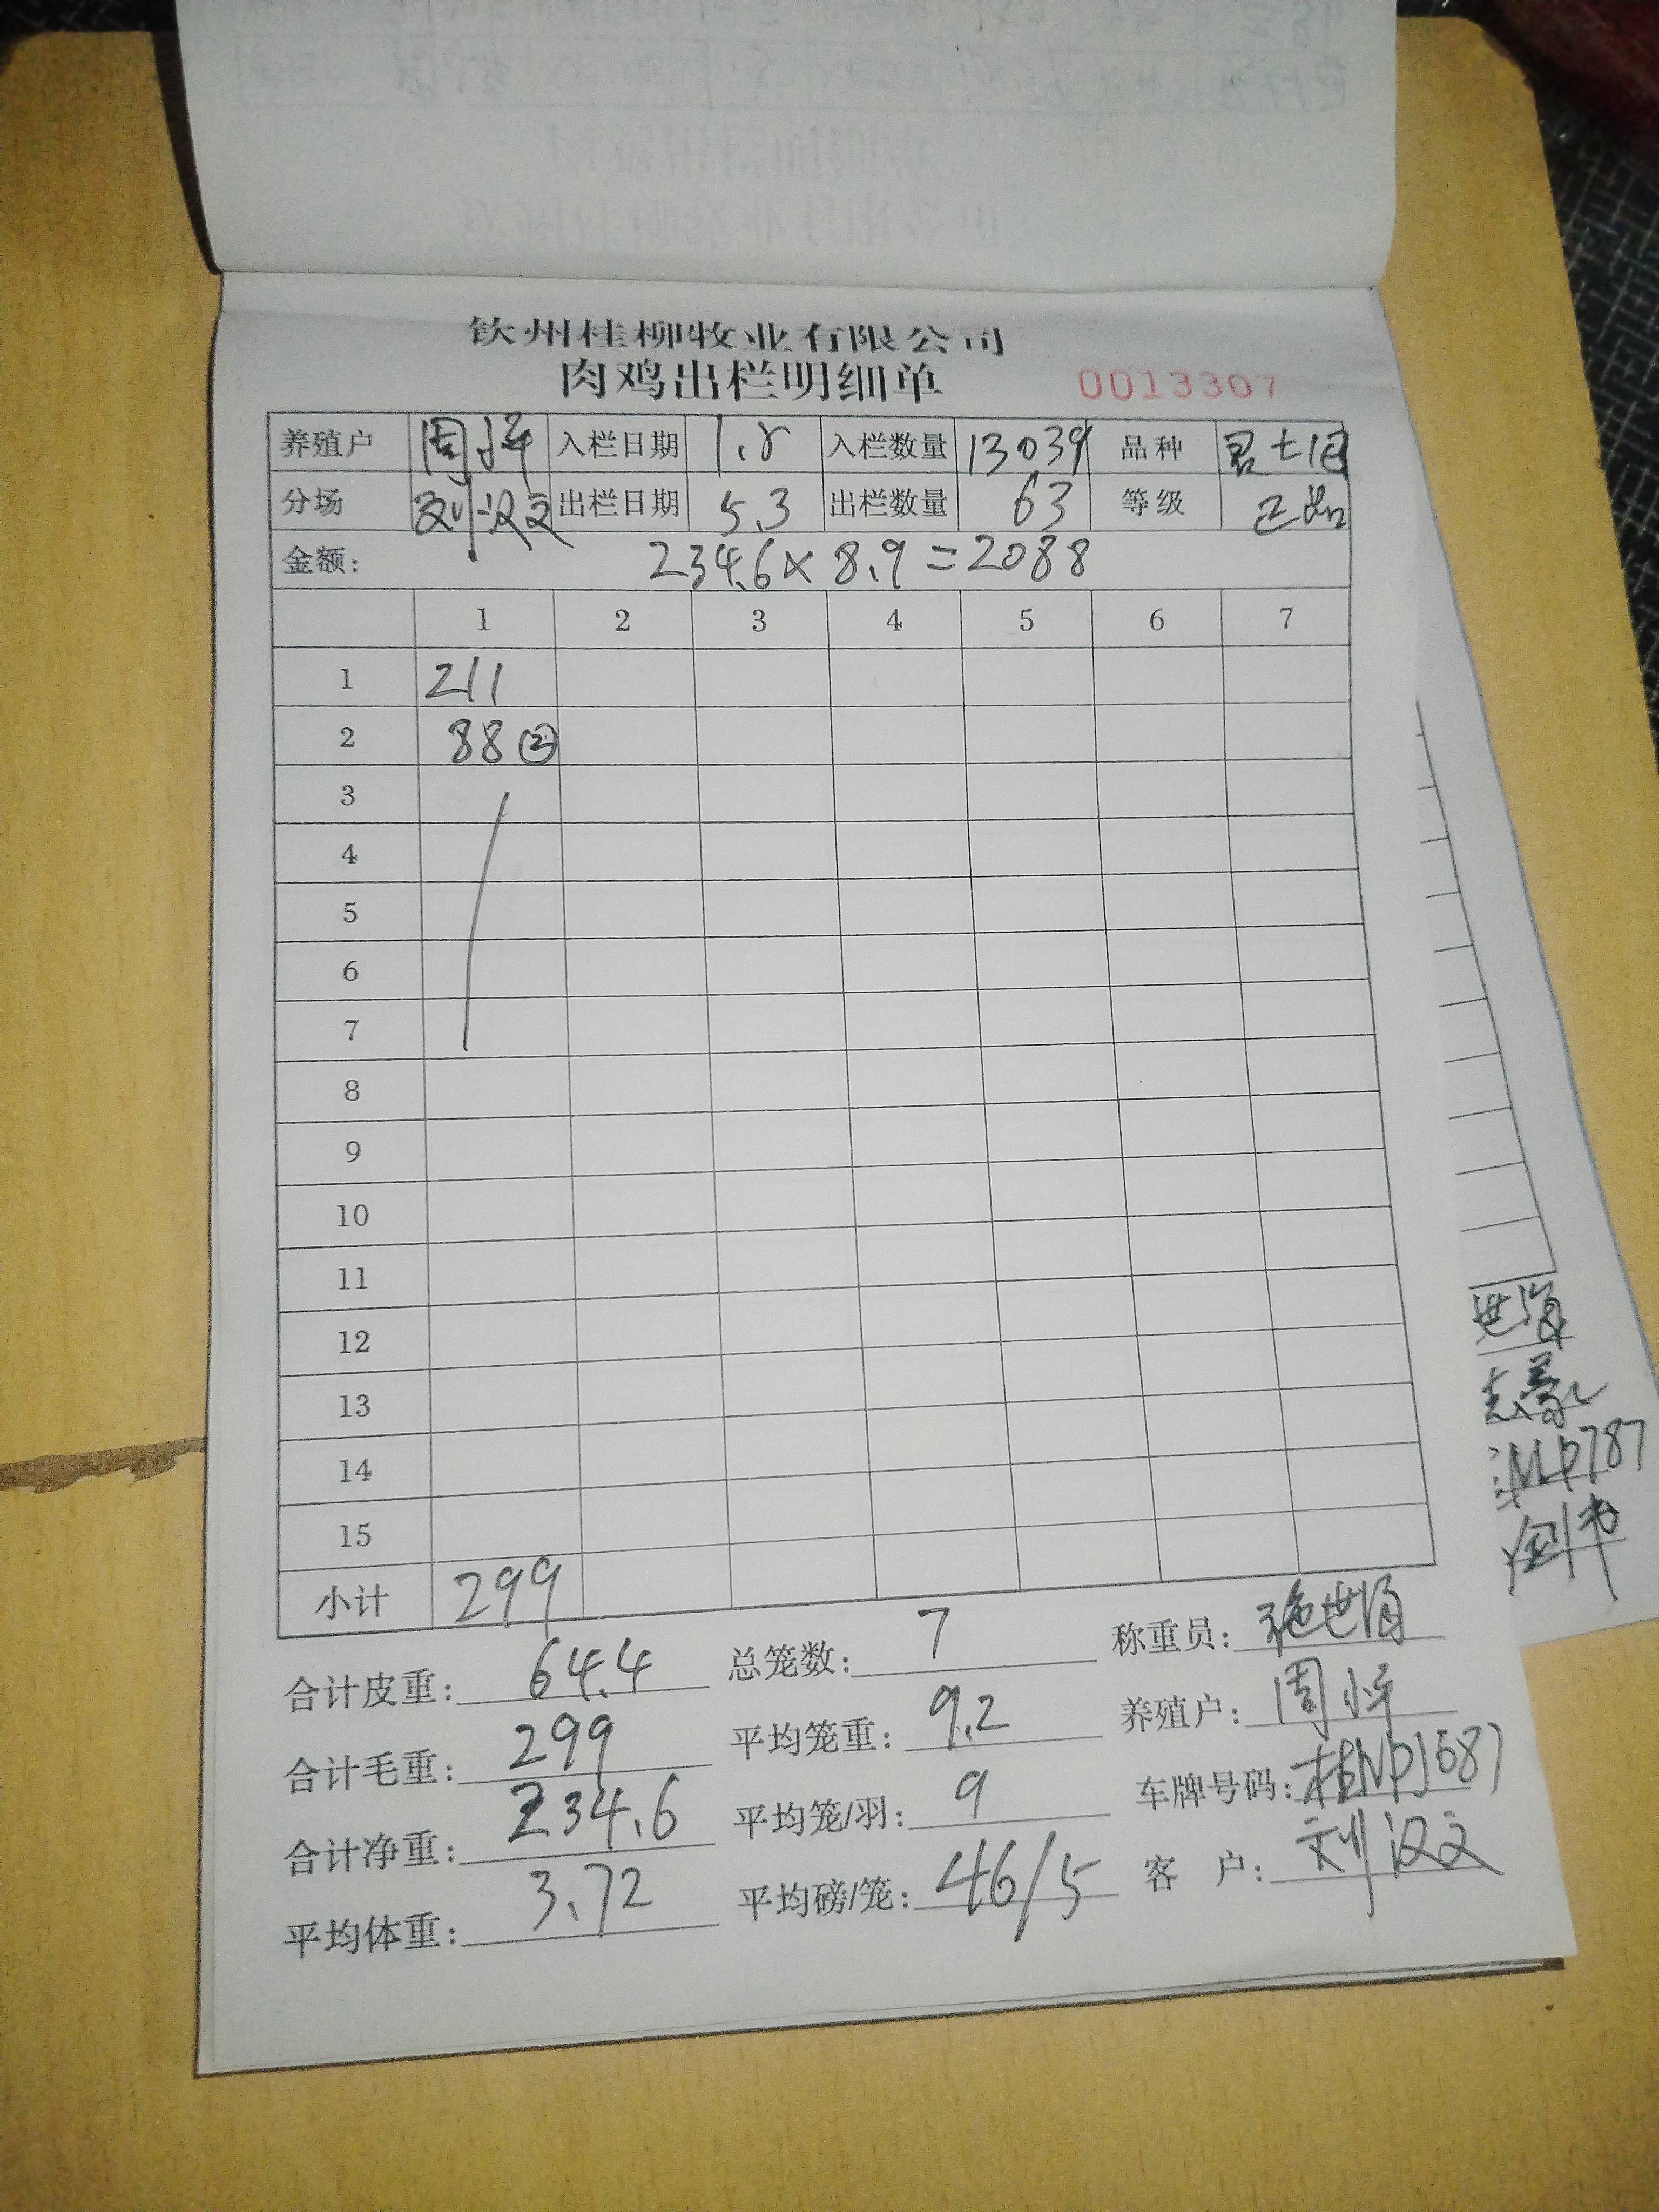 钦州桂柳牧业有限公司
肉鸡出栏明细单 0013307
养殖户 周 入栏日期 1.8 入栏数量 13039 品种
分场 刘汉文 出栏日期 5.3 出栏数量 63 等级 正品
金额: 234.6×8.9=2088
1 2 3 4 5 6 7
1 211
2 88②
3
4
5
6
7
8
9
10
11
12
13
14
15
小计 299
合计皮重: 64.4 总笼数: 7 称重员: 施世海
合计毛重: 299 平均笼重: 9.2 养殖户: 周
合计净重: 234.6 平均笼/羽: 9 车牌号码: 桂NP1587
平均体重: 3.72 平均磅/笼: 46/5 客 户: 刘汉文
世海
志豪
P787